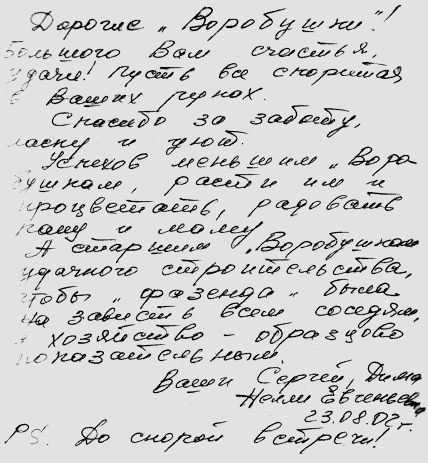 Дорогие „Воробушки"!
Большого Вам счастья,
удачи! Пусть все спорится
в Ваших руках.
Спасибо за заботу,
ласку и уют.
Успехов меньшим „Воро-
бушкам, расти им и
процветать, радовать
папу и маму.
А старшим „Воробушкам
удачного строительства,
чтобы „фазенда" была
на зависть всем соседям,
а хозяйство - образцово
показательным.
Ваши Сергей, Дима
Нелли Евгеньевна
23.08.02г.
PS. До скорой встречи!